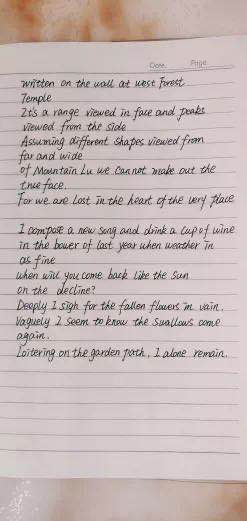 Date.    Page.
written on the wall at west Forest
Temple
It's a range viewed in face and peaks
viewed from the side
Assuming different shapes viewed from
far and wide
of Mountain Lu we cannot make out the
true face.
For we are lost in the heart of the very place
I compose a new song and drink a cup of wine
in the bower of last year when weather is
as fine
when will you come back like the sun
on the decline?
Deeply I sigh for the fallen flowers in vain.
Vaguely I seem to know the swallows come
again.
Loitering on the garden path, I alone remain.